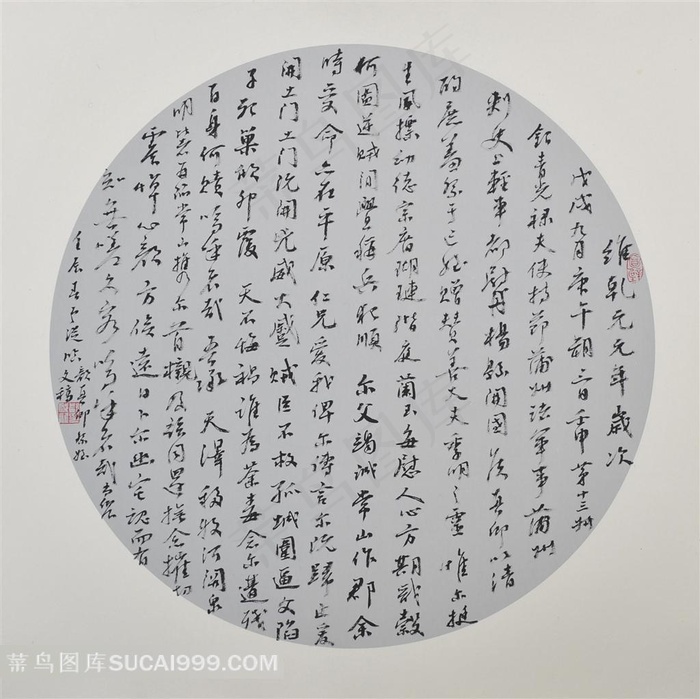 維乾元元年歲次
戊戌九月庚午朔三日壬申第十三叔
銀青光祿夫使持節蒲州諸軍事蒲州
刺史上輕車都尉丹楊縣開國侯真卿以清
酌庶羞祭于亡姪贈贊善大夫季明之靈惟尔挺
生夙摽幼德宗廟瑚璉階庭蘭玉每慰人心方期戩穀
何圖逆賊閒舋稱兵犯順尔父竭誠常山作郡余
時受命亦在平原仁兄愛我俾尔傳言尔既歸止爰
開土門土門既開兇威大蹙賊臣不救孤城圍逼父陷
子死巢傾卵覆天不悔禍誰為荼毒念尔遘殘
百身何贖嗚呼哀哉吾承天澤移牧河關泉
明比者再陷常山攜尔首櫬及茲同還撫念摧切
震悼心顏方俟遠日卜尔幽宅魂而有
知無嗟久客嗚呼哀哉尚饗
壬辰春臨顏真卿祭姪
文稿
菜鸟图库SUCAI999.COM
菜鸟图库